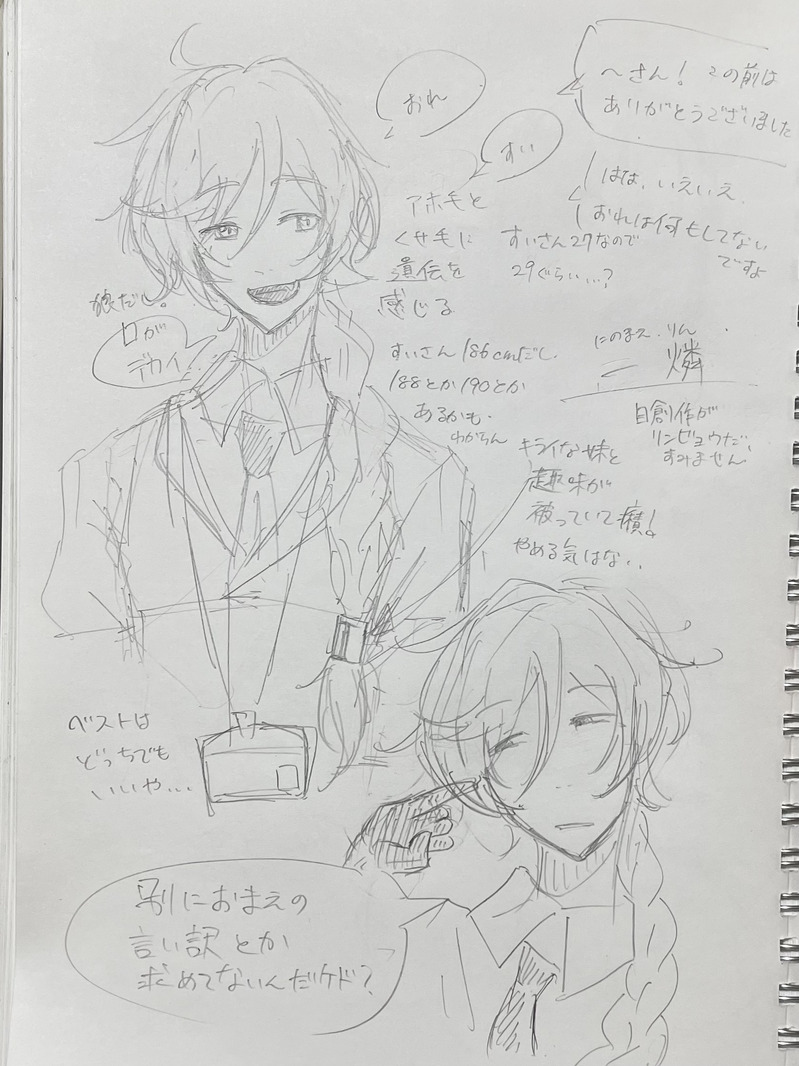 おれ
すい
〜さん！この前は
ありがとうございました
はは、いえいえ、
おれは何もしてない
ですよ
アホ毛と
クサ毛に
遺伝を
感じる
すいさん27なので
29ぐらい…?
狼だし。
口が
デカイ
すいさん186cmだし
188とか190とか
あるかも
わからん
にのまえ りん
一 燐
自創作が
リンゼョウだ、
すみません
キライな妹と
趣味が
被っていて癪!
やめる気はない、
ベストは
どっちでも
いいや…
別におまえの
言い訳とか
求めてないんだケド?